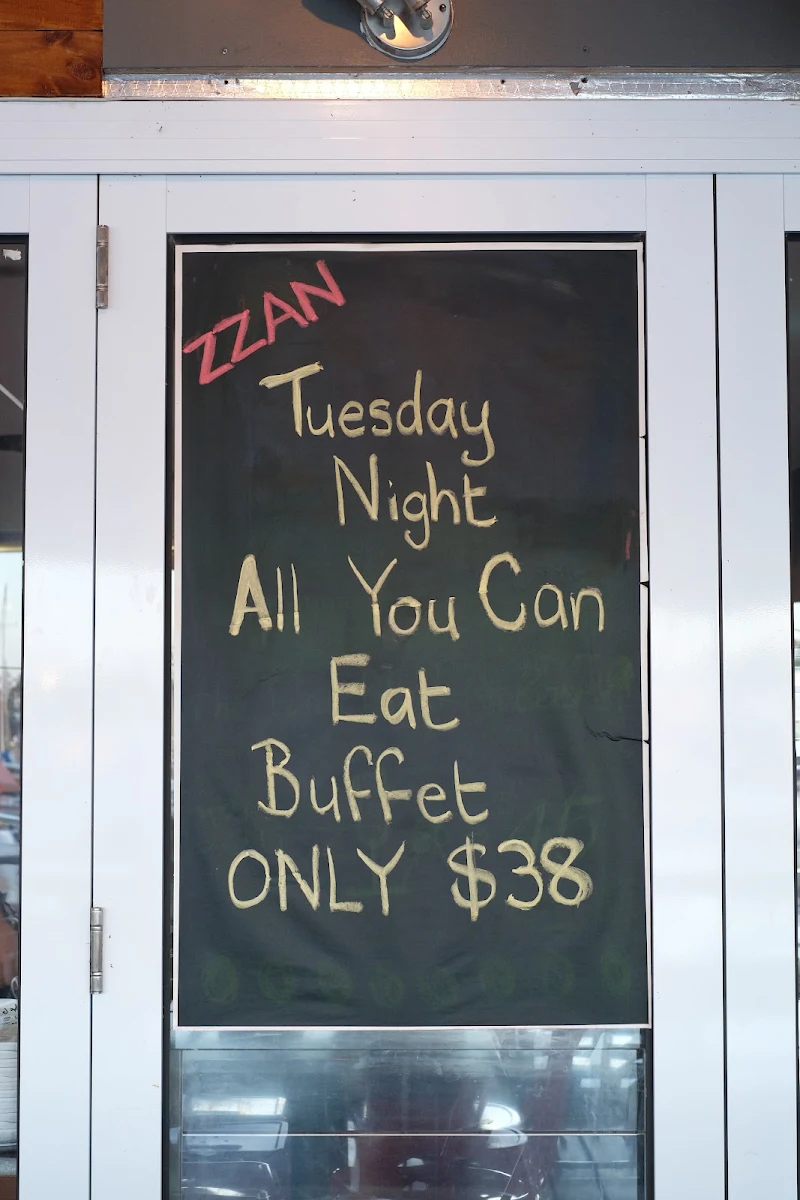 ZZAN
Tuesday
Night
All You Can
Eat
Buffet
ONLY $38